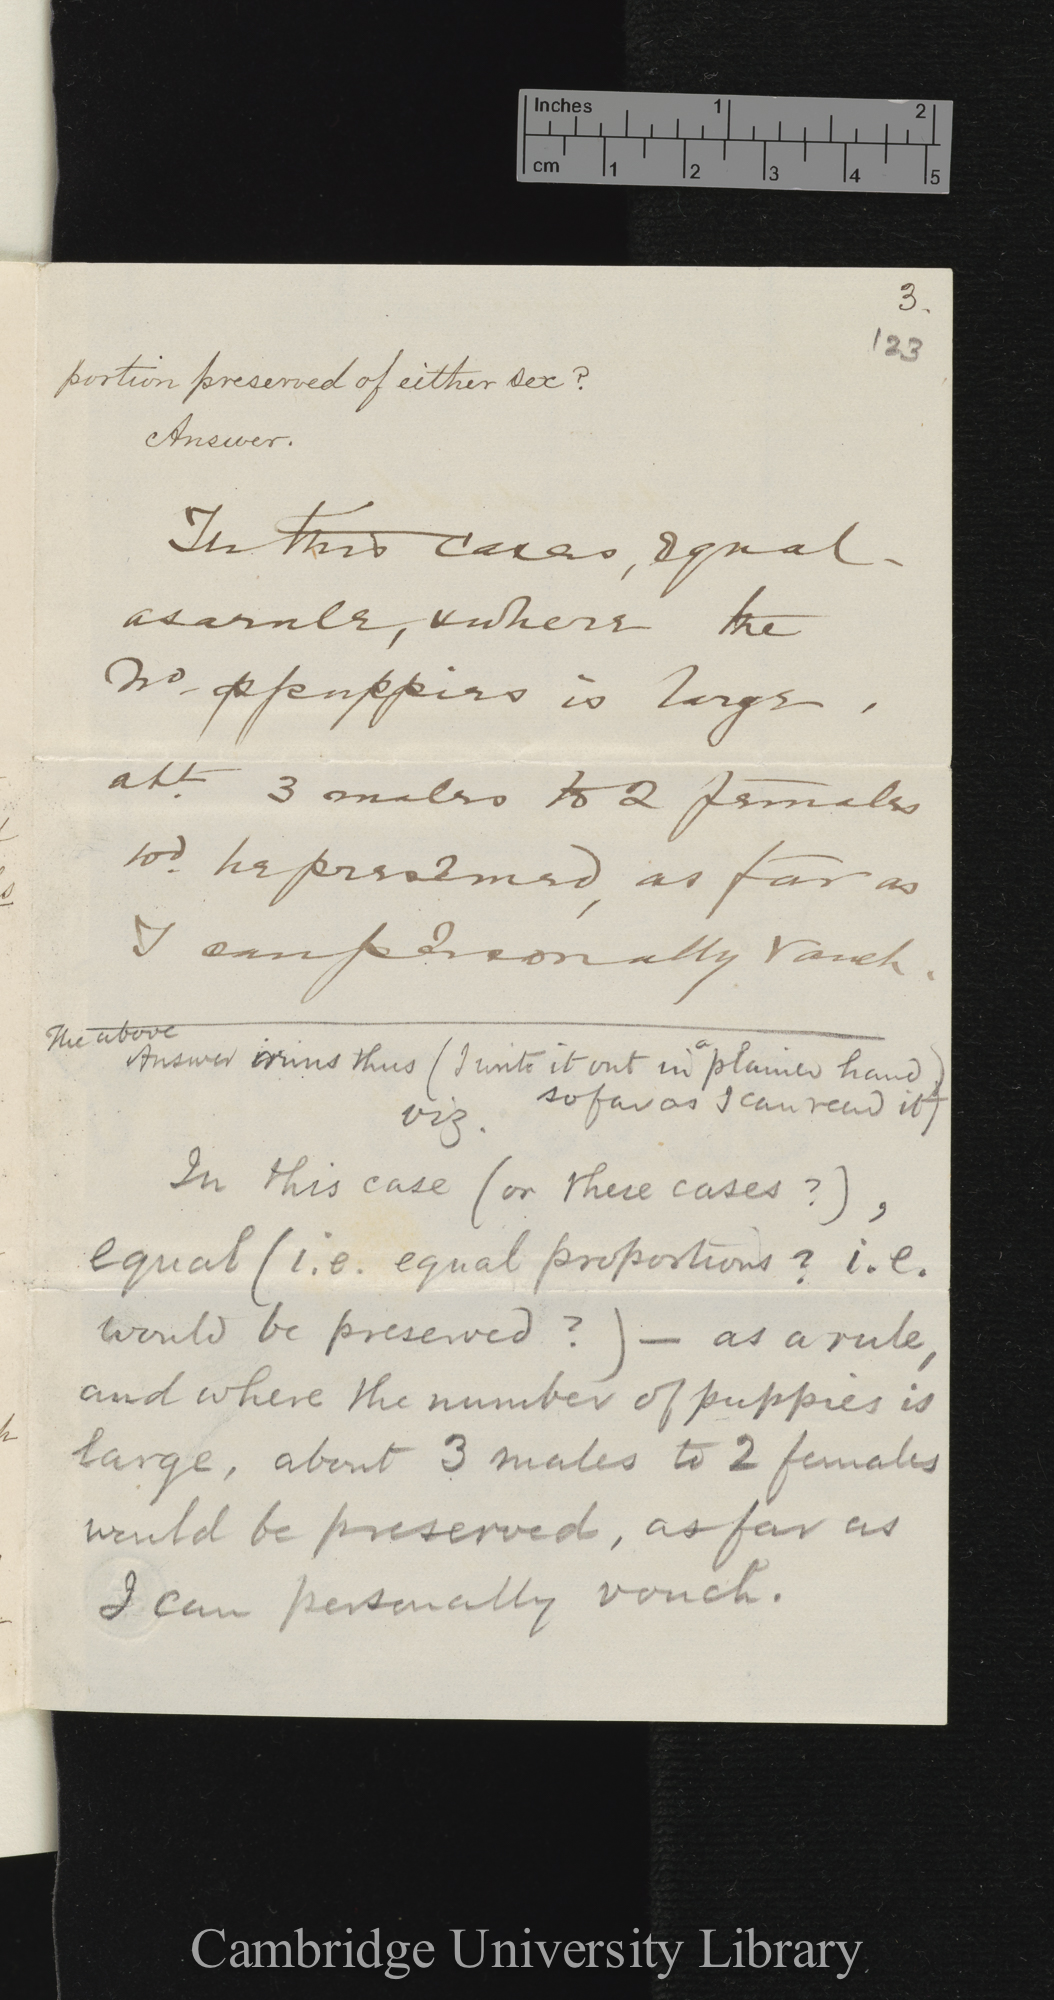 Inches 1 2
cm 1 2 3 4 5
3.
123
portion preserved of either sex?
Answer.
In this cases, equal -
as a rule, & where the
No. of puppies is large,
abt. 3 males to 2 females
wd. be preserved, as far as
I can personally vouch.
The above
Answer runs thus (I write it out in a plainer hand,
so far as I can read it)
viz.
In this case (or these cases?),
equal (i.e. equal proportions? i.e.
would be preserved?) — as a rule,
and where the number of puppies is
large, about 3 males to 2 females
would be preserved, as far as
I can personally vouch.
Cambridge University Library